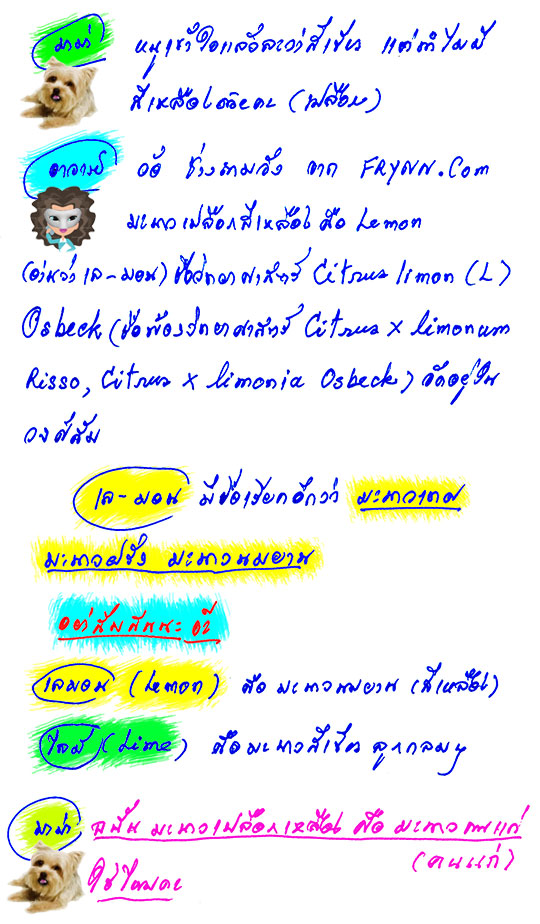 มาม่า หนูเข้าใจแล้วละว่าสีเขียว แต่ทำไมมี
สีเหลืองด้วยคะ (เปลือก)
อาจารย์ อ้อ ช่างถามจัง จาก FRYNN.Com
มะนาวเปลือกสีเหลืองคือ Lemon
(อ่านว่า เล-มอน) ชื่อวิทยาศาสตร์ Citrus limon (L.)
Osbeck (ชื่อพ้องวิทยาศาสตร์ Citrus × limonum
Risso, Citrus × limonia Osbeck) จัดอยู่ใน
วงศ์ส้ม
เล-มอน มีชื่อเรียกอีกว่า มะนาวเทศ
มะนาวฝรั่ง มะนาวนมยาน
อย่าสับสนนะ
เลมอน (Lemon) คือ มะนาวนมยาน (สีเหลือง)
ไลม์ (Lime) คือมะนาวสีเขียว ลูกกลมๆ
มาม่า: ฉะนั้น มะนาวเปลือกเหลือง คือ มะนาว
(คนแก่)
ใช่ไหมคะ